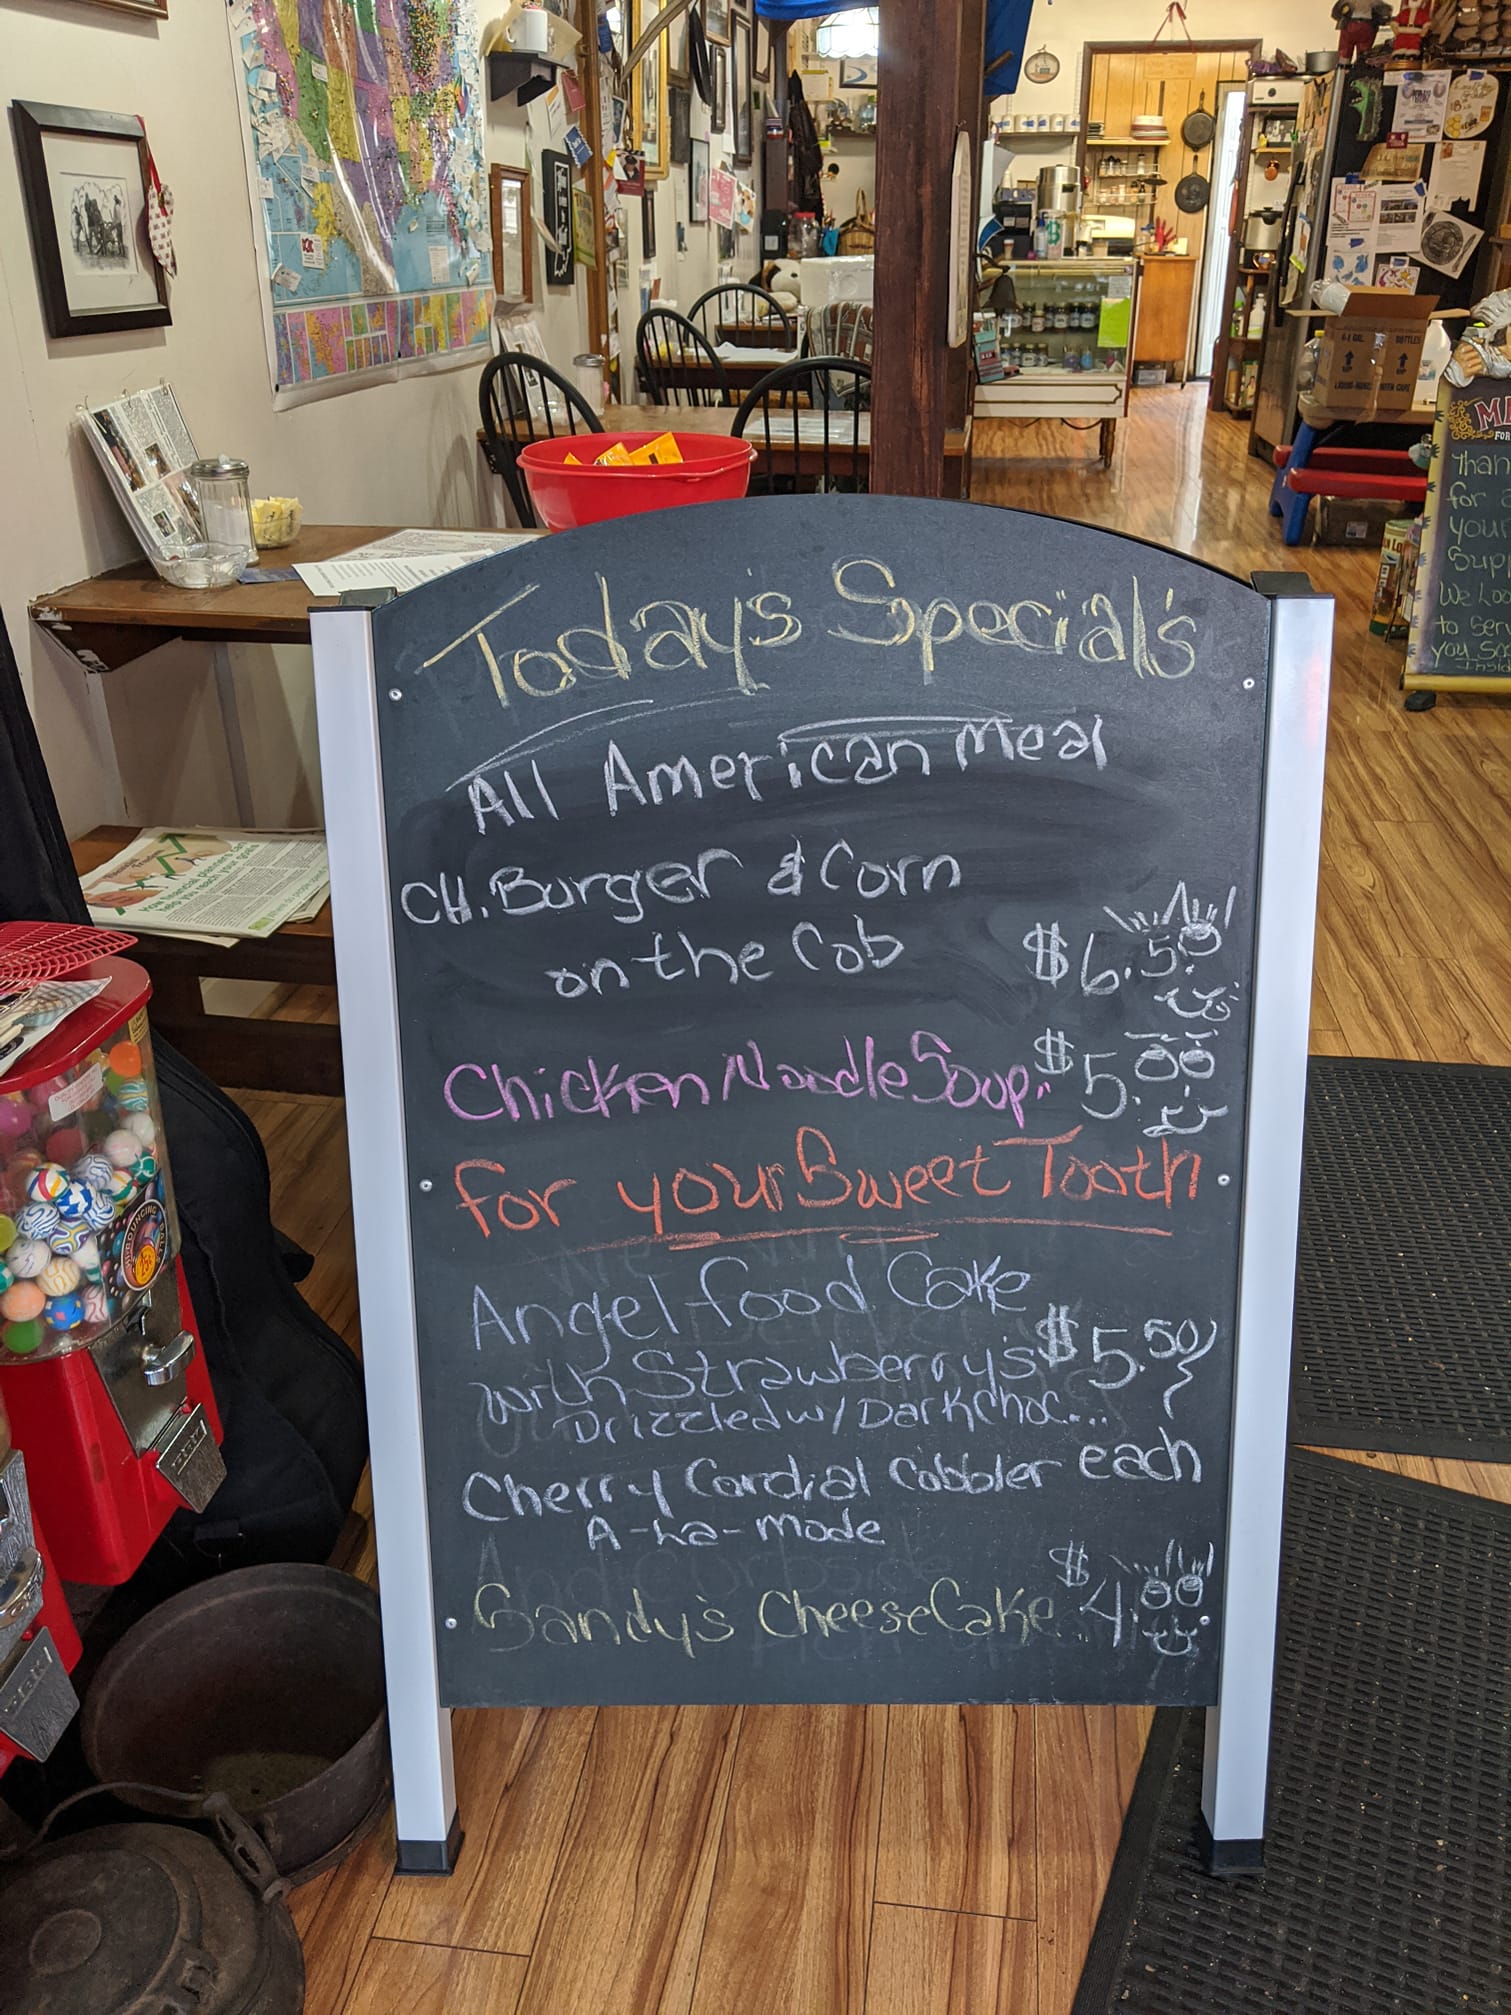 Today's Special's
All American Meal
CH. Burger & Corn
on the Cob $6.50
Chicken Noodle Soup.. $5.00
for your Sweet Tooth
Angel food Cake
with Strawberry's $5.50
Drizzled w/ Dark Choc...
Cherry Cordial Cobbler each
A-La-Mode
Sandy's CheeseCake.. $4.00
for
your
Supp
We Lo
to Ser
HI-BOUNCING
BALLS